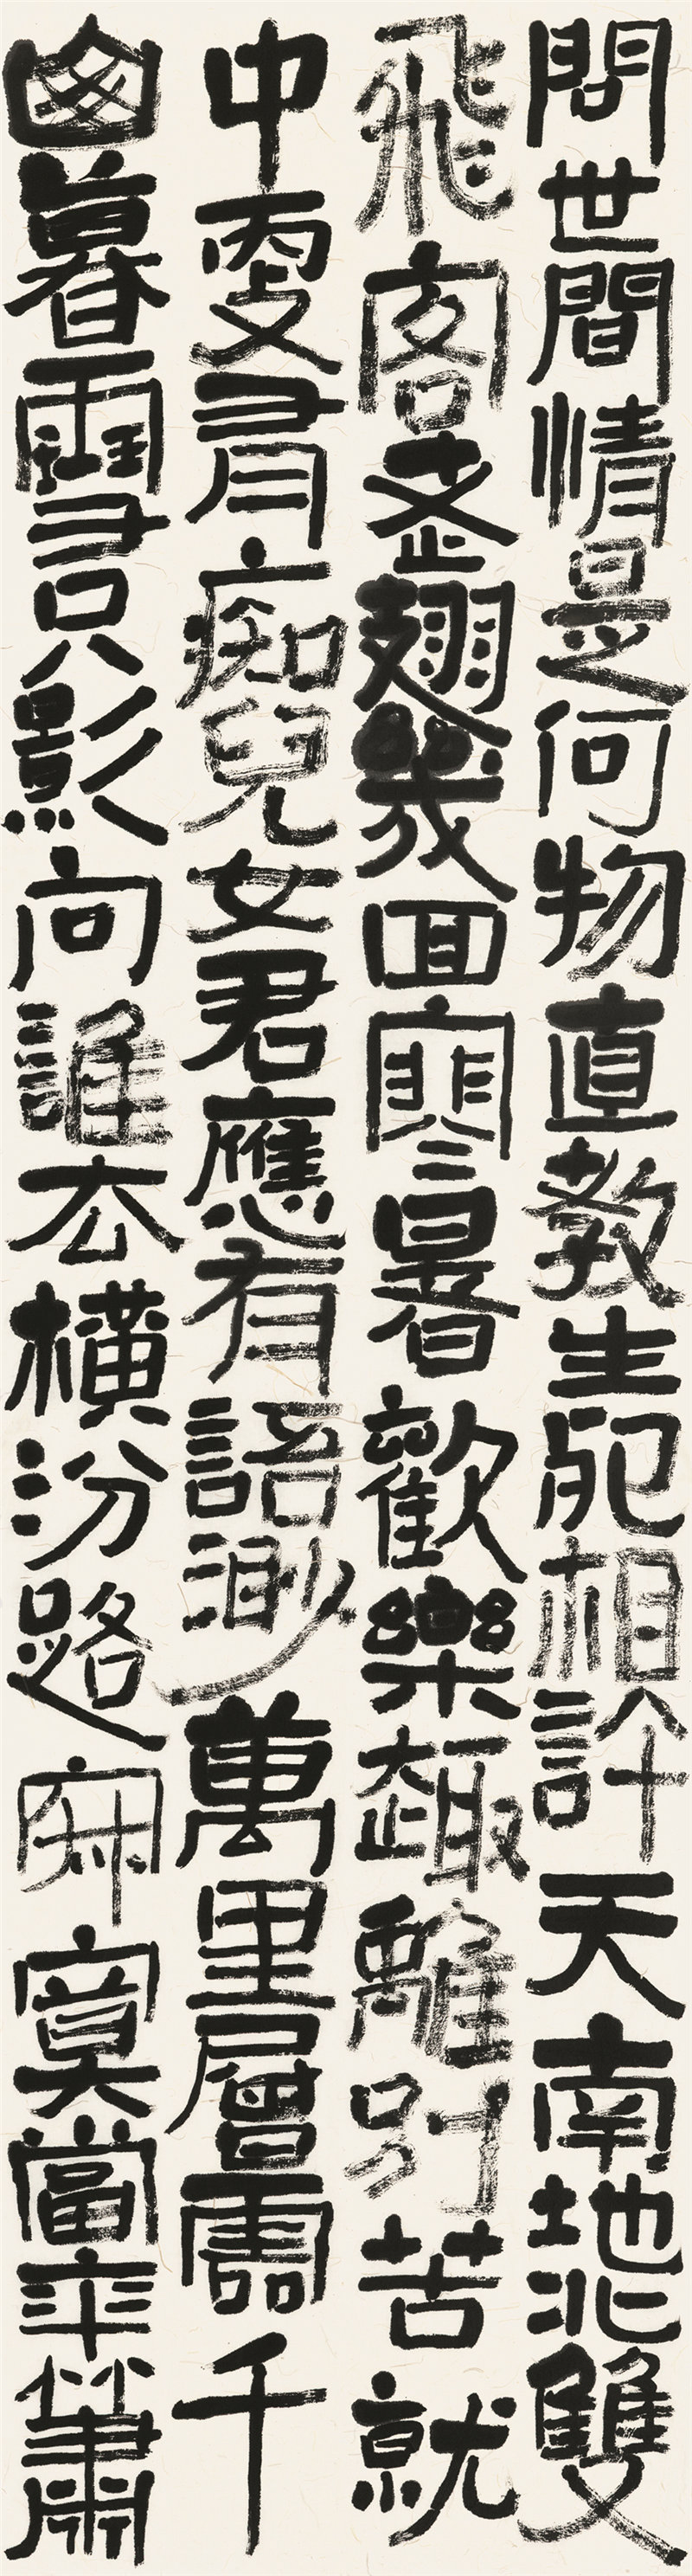 問世間情是何物直教生死相許天南地北雙
飛客老翅幾回寒暑歡樂趣離別苦就
中更有痴兒女君應有語渺萬里層雲千
山暮雪只影向誰去橫汾路寂寞當年簫